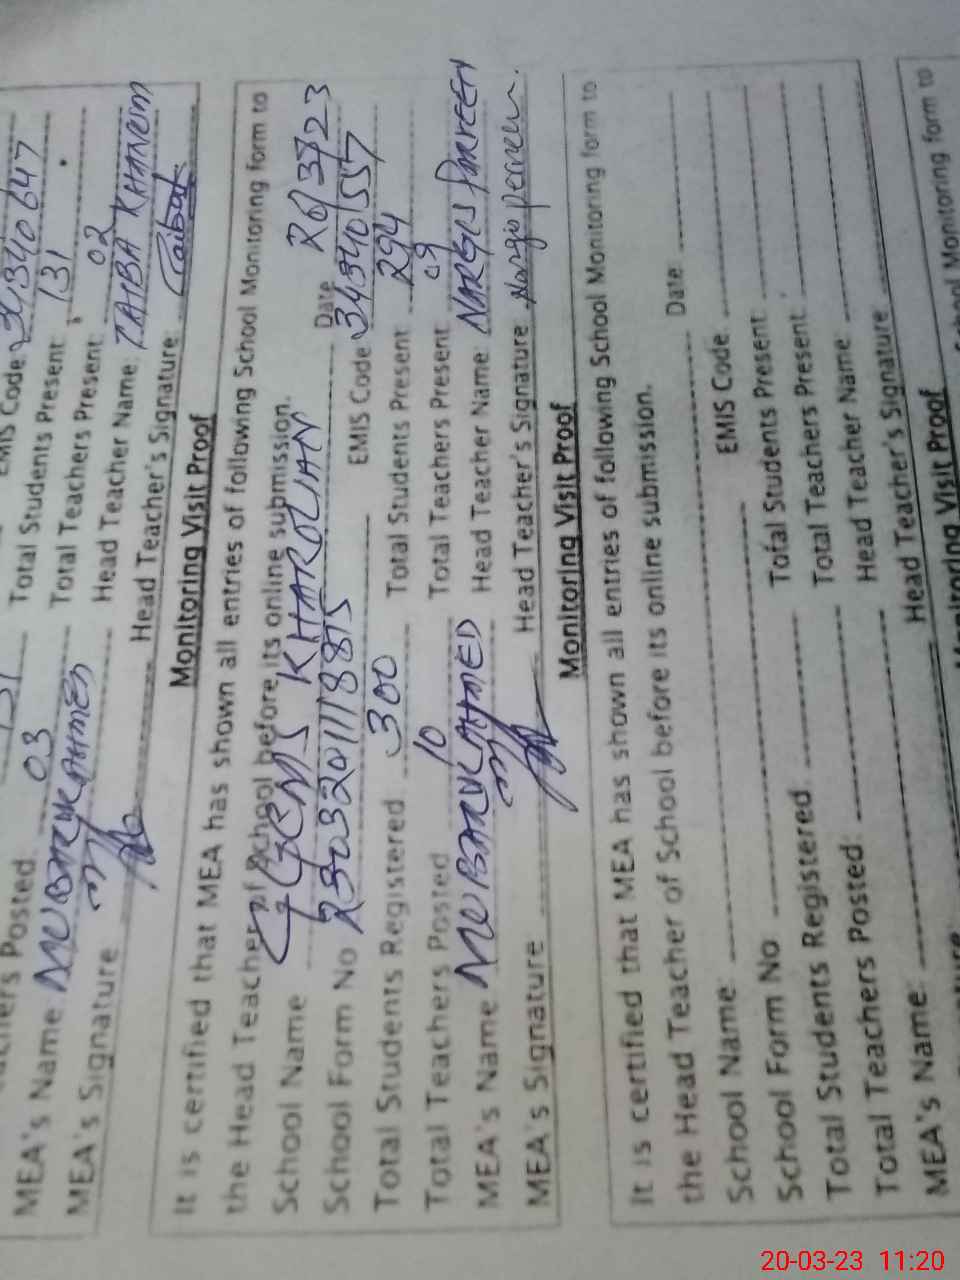 EMIS Code 34340647
Total Students Present 131
Teachers Posted 03 Total Teachers Present 02
MEA's Name MUBARUK AHMED Head Teacher Name: TAIBA KHANUM
MEA's Signature Head Teacher's Signature:
Monitoring Visit Proof
It is certified that MEA has shown all entries of following School Monitoring form to
the Head Teacher of School before its online submission.
School Name KHAROLIAN Date
School Form No EMIS Code 34340557
Total Students Registered 300 Total Students Present 294
Total Teachers Posted 10 Total Teachers Present 09
MEA's Name MUBARUK AHMED Head Teacher Name: NARGIS PARVEEN
MEA's Signature Head Teacher's Signature
Monitoring Visit Proof
It is certified that MEA has shown all entries of following School Monitoring form to
the Head Teacher of School before its online submission.
Date
School Name: EMIS Code:
School Form No Total Students Present
Total Students Registered: Total Teachers Present
Total Teachers Posted: Head Teacher Name:
MEA's Name: Head Teacher's Signature
Monitoring Visit Proof
School Monitoring form to
20-03-23 11:20